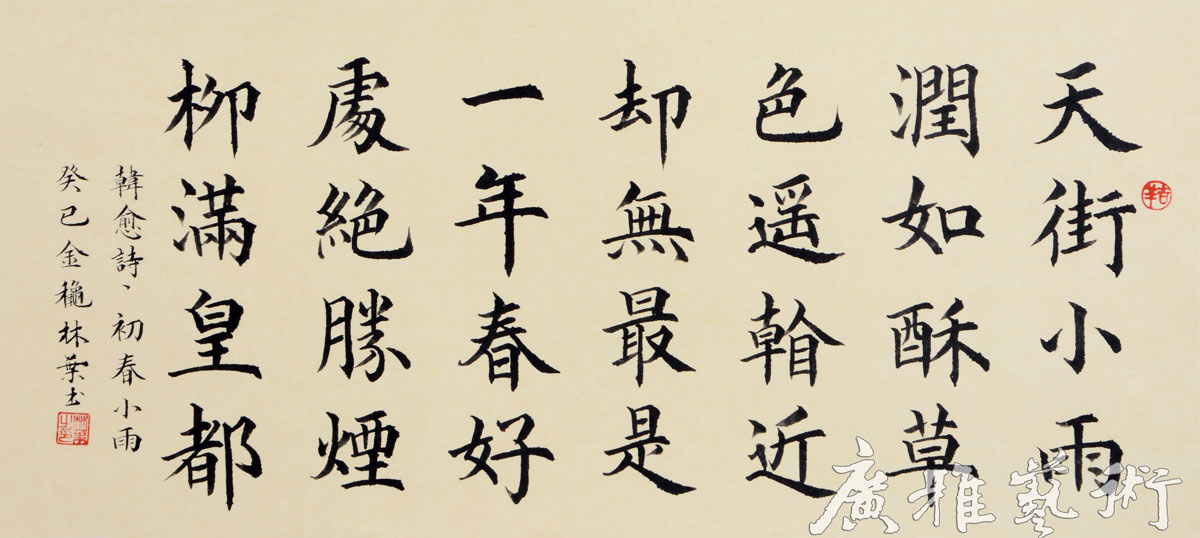 天街小雨
潤如酥草
色遥看近
却無最是
一年春好
處絕勝煙
柳滿皇都
韓愈詩、初春小雨
癸巳金穐林葉书
廣雅藝術